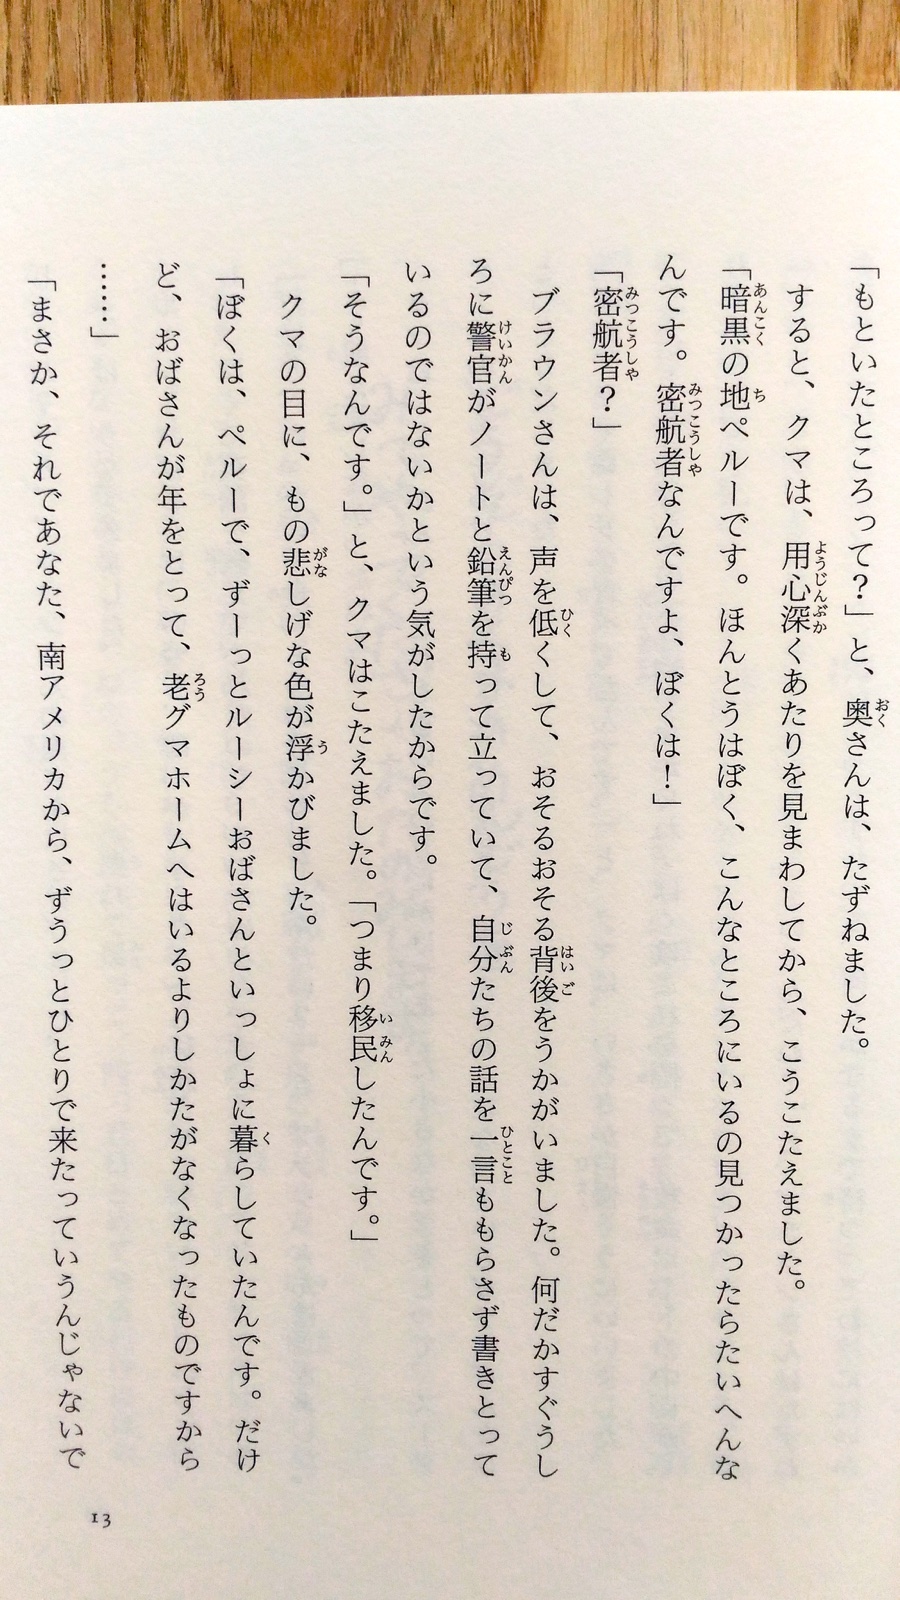 「もといたところって？」と、奥さんは、たずねました。
すると、クマは、用心深くあたりを見まわしてから、こうこたえました。
「暗黒の地ペルーです。ほんとうはぼく、こんなところにいるの見つかったらたいへんな
んです。密航者なんですよ、ぼくは！」
「密航者？」
ブラウンさんは、声を低くして、おそるおそる背後をうかがいました。何だかすぐうし
ろに警官がノートと鉛筆を持って立っていて、自分たちの話を一言ももらさず書きとって
いるのではないかという気がしたからです。
「そうなんです。」と、クマはこたえました。「つまり移民したんです。」
クマの目に、もの悲しげな色が浮かびました。
「ぼくは、ペルーで、ずーっとルーシーおばさんといっしょに暮らしていたんです。だけ
ど、おばさんが年をとって、老グマホームへはいるよりしかたがなくなったものですから
……」
「まさか、それであなた、南アメリカから、ずうっとひとりで来たっていうんじゃないで
13